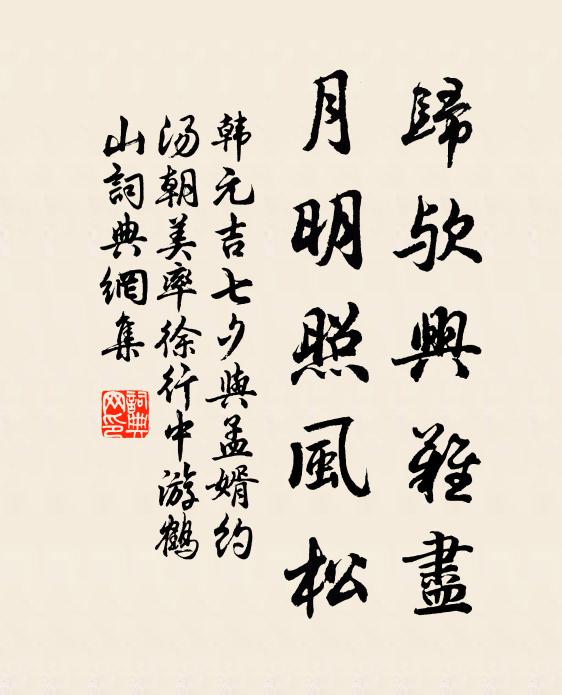 歸欤興難盡
月明照風松
韩元吉七夕與孟婿约
汤朝美率徐行中游鹤
山詞典網集
詞典网印